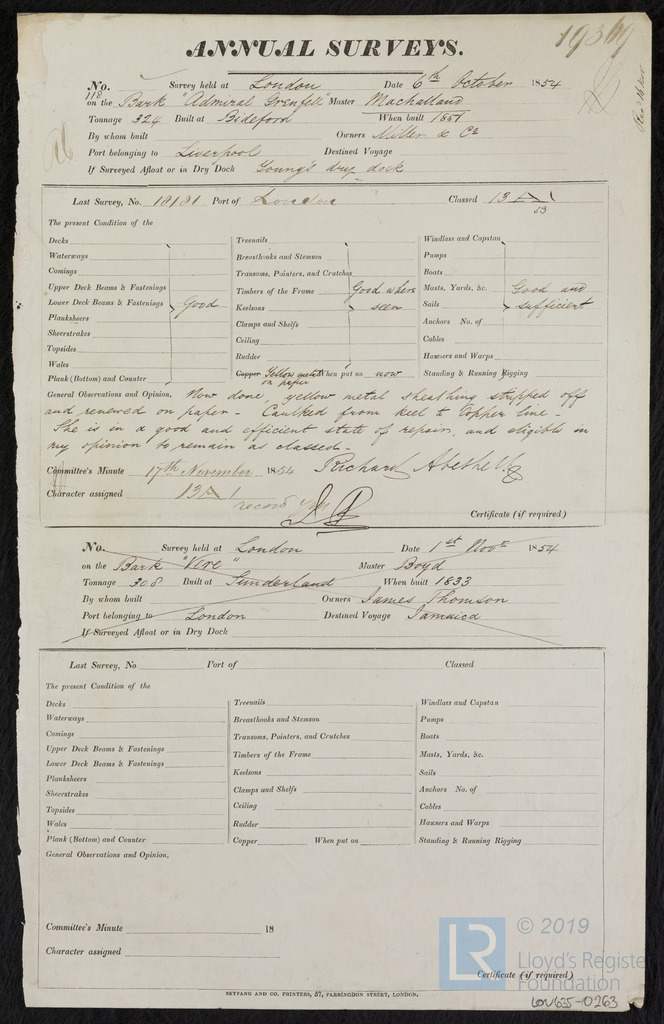 ANNUAL SURVEYS.
19369
No. 118 Survey held at London Date 6th October 1854
on the Bark "Admiral Grenfell" Master Machalland
Tonnage 324 Built at Bideford When built 1851
By whom built Owners Miller & Co
Port belonging to Liverpool Destined Voyage
If Surveyed Afloat or in Dry Dock Young's dry dock
Last Survey, No. 18181 Port of London Classed 13 A 1
53
The present Condition of the
Decks
Waterways
Comings
Upper Deck Beams & Fastenings
Lower Deck Beams & Fastenings Good
Planksheers
Sheerstrakes
Topsides
Wales
Plank (Bottom) and Counter
Treenails
Breasthooks and Stemson
Transoms, Pointers, and Crutches
Timbers of the Frame Good where
Keelsons seen
Clamps and Shelfs
Ceiling
Rudder
Copper Yellow metal on paper When put on now
Windlass and Capstan
Pumps
Boats
Masts, Yards, &c. Good and
Sails sufficient
Anchors No. of
Cables
Hawsers and Warps
Standing & Running Rigging
General Observations and Opinion, Now done, yellow metal sheathing stripped off
and renewed on paper - Caulked from keel to Copper line -
She is in a good and efficient state of repair, and eligible in
my opinion to remain as classed -
Committee's Minute 17th November 1854 Richard Abethell
Character assigned 13 A 1
record
Certificate (if required)
No. Survey held at London Date 1st Novr 1854
on the Bark "Vere" Master Boyd
Tonnage 308 Built at Sunderland When built 1833
By whom built Owners James Thomson
Port belonging to London Destined Voyage Jamaica
If Surveyed Afloat or in Dry Dock
Last Survey, No Port of Classed
The present Condition of the
Decks
Waterways
Comings
Upper Deck Beams & Fastenings
Lower Deck Beams & Fastenings
Planksheers
Sheerstrakes
Topsides
Wales
Plank (Bottom) and Counter
Treenails
Breasthooks and Stemson
Transoms, Pointers, and Crutches
Timbers of the Frame
Keelsons
Clamps and Shelfs
Ceiling
Rudder
Copper When put on
Windlass and Capstan
Pumps
Boats
Masts, Yards, &c.
Sails
Anchors No. of
Cables
Hawsers and Warps
Standing & Running Rigging
General Observations and Opinion,
Committee's Minute 18
Character assigned
Certificate (if required)
SEYFANG AND CO. PRINTERS, 57, FARRINGDON STREET, LONDON.
LR © 2019
Lloyd's Register
Foundation
LON635-0263